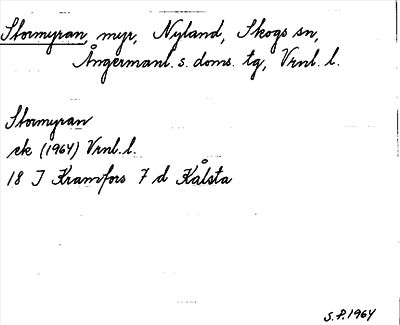 Stormyran, myr, Nyland, Skogs sn,
Ångermanl. s. doms. tg, Vrnl. l.
Stormyran
ek (1964) Vrnl. l.
18 J Kramfors 7 d Kålsta
S.P. 1964